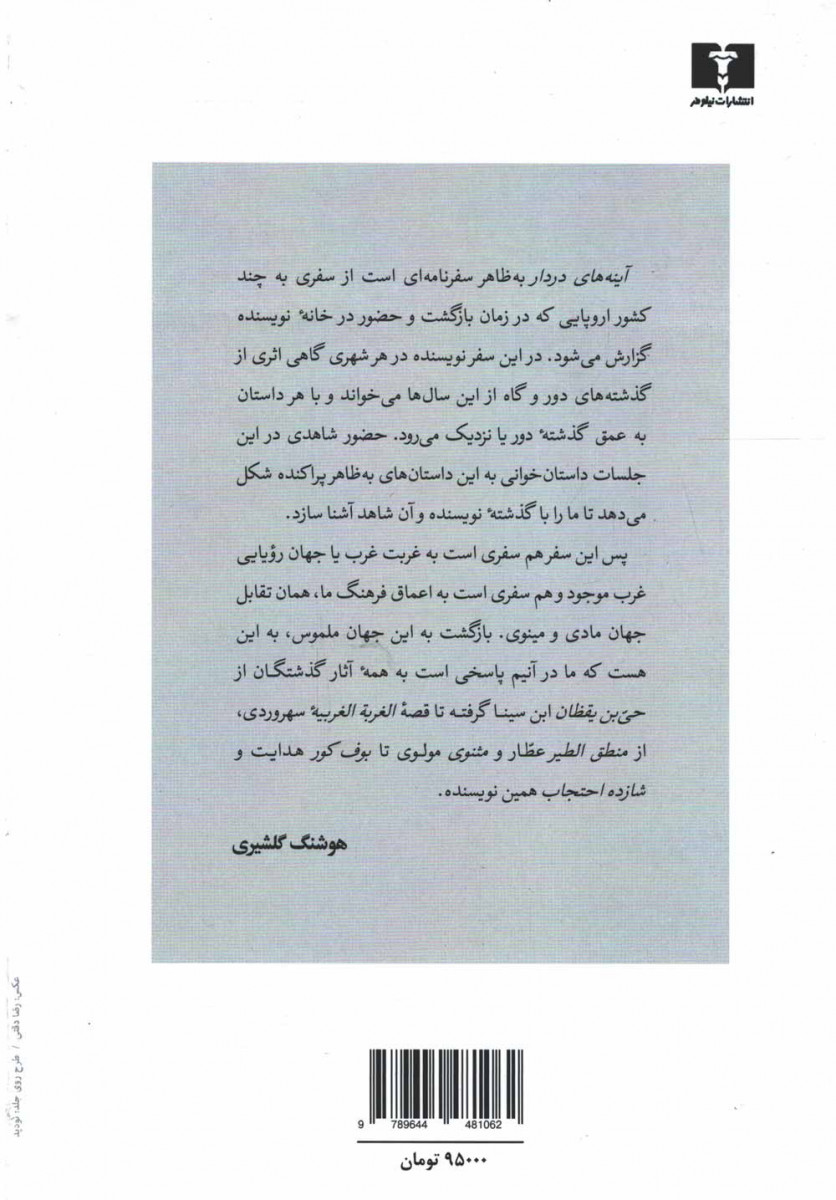 انتشارات نیلوفر
آینه‌های دردار به‌ظاهر سفرنامه‌ای است از سفری به چند
کشور اروپایی که در زمان بازگشت و حضور در خانهٔ نویسنده
گزارش می‌شود. در این سفر نویسنده در هر شهری گاهی اثری از
گذشته‌های دور و گاه از این سال‌ها می‌خواند و با هر داستان
به عمق گذشتهٔ دور یا نزدیک می‌رود. حضور شاهدی در این
جلسات داستان‌خوانی به این داستان‌های به‌ظاهر پراکنده شکل
می‌دهد تا ما را با گذشتهٔ نویسنده و آن شاهد آشنا سازد.
پس این سفر هم سفری است به غربت غرب یا جهان رؤیایی
غرب موجود و هم سفری است به اعماق فرهنگ ما، همان تقابل
جهان مادی و مینوی. بازگشت به این جهان ملموس، به این
هست که ما در آنیم پاسخی است به همهٔ آثار گذشتگان از
حیّ‌بن یقظان ابن سینا گرفته تا قصهٔ الغربة الغربیهٔ سهروردی،
از منطق الطیر عطّار و مثنوی مولوی تا بوف کور هدایت و
شازده احتجاب همین نویسنده.
هوشنگ گلشیری
عکس: رضا دقتی / طرح روی جلد:
9 789644 481062
۹۵۰۰۰ تومان